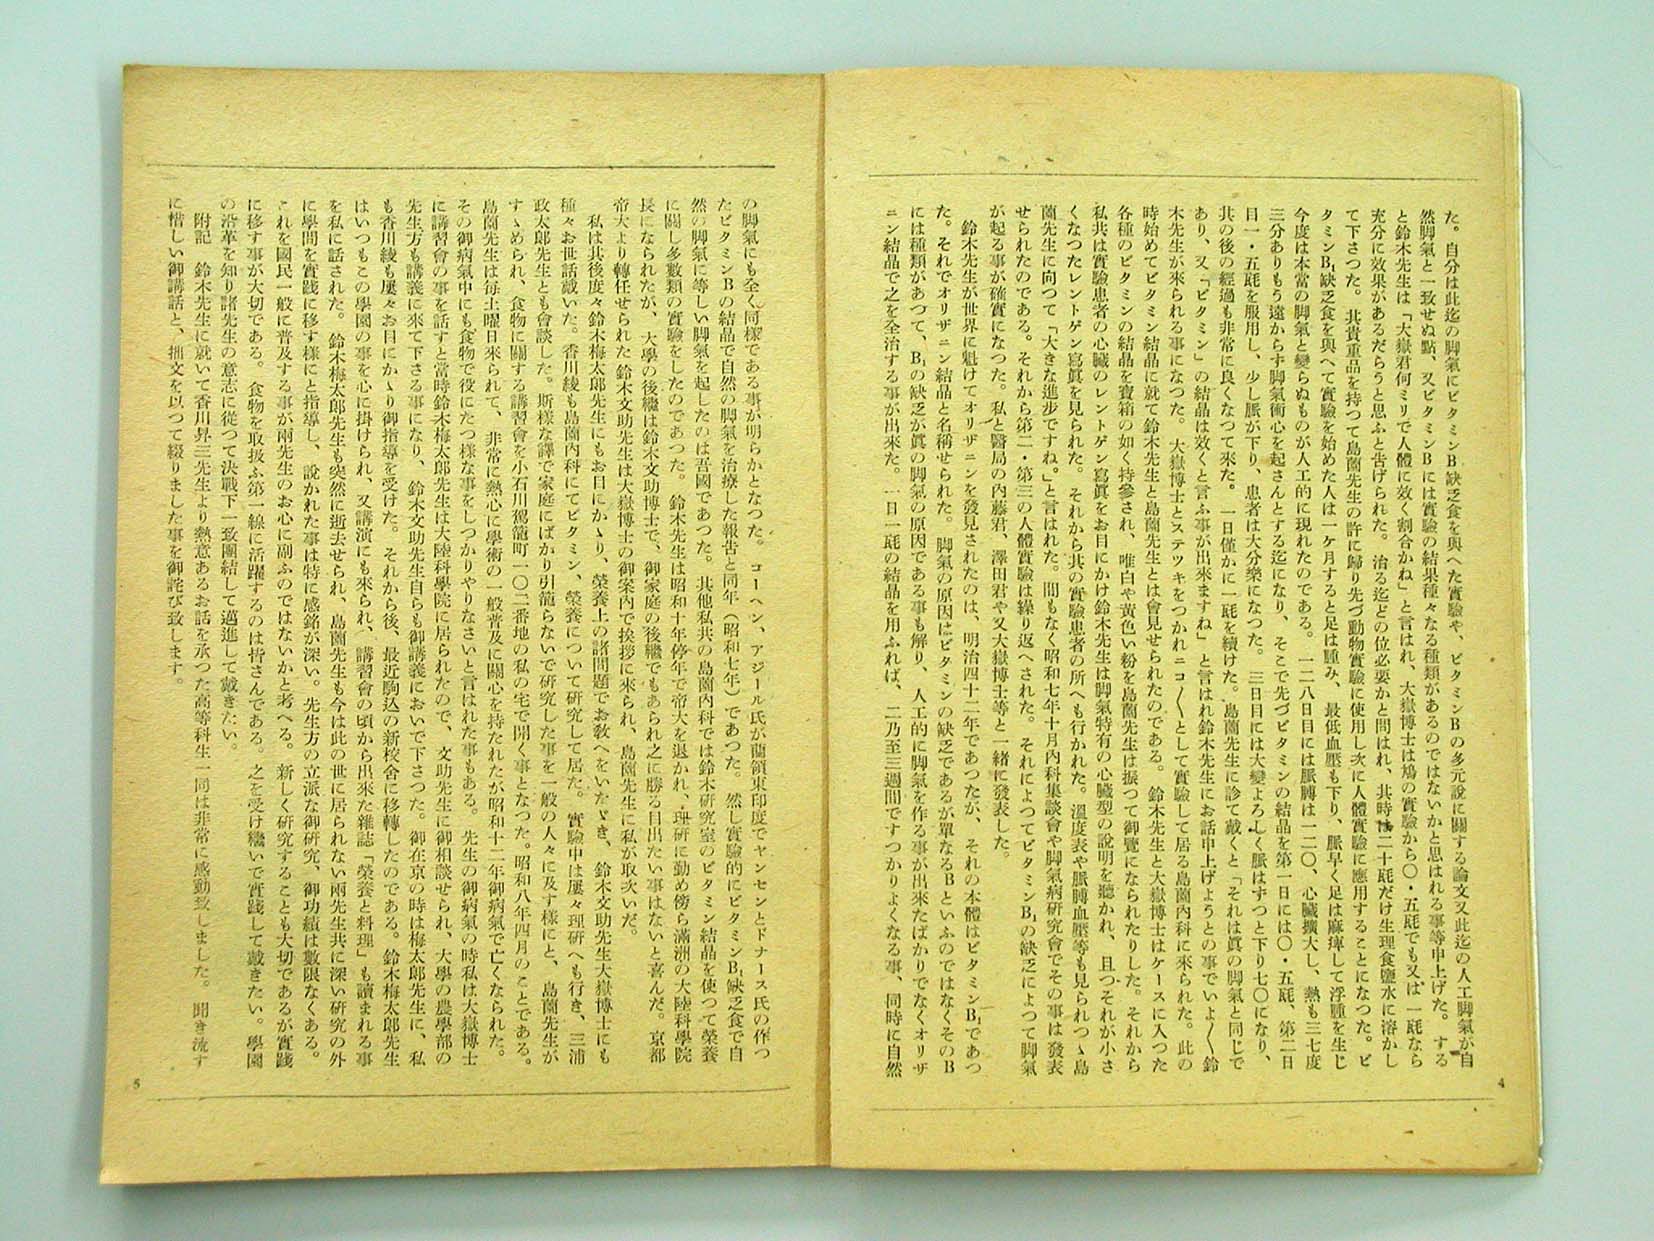 4
た。自分は此迄の脚氣にビタミンB缺乏食を與へた實驗や、ビタミンBの多元說に關する論文又此迄の人工脚氣が自
然脚氣と一致せぬ點、又ビタミンBには實驗の結果種々なる種類があるのではないかと思はれる事等申上げた。する
と鈴木先生は「大嶽君何ミリで人體に效く割合かね」と言はれ、大嶽博士は鳩の實驗から〇・五瓱でも又は一瓱なら
充分に效果があるだらうと思ふと吿げられた。治る迄どの位必要かと問はれ、其時は二十瓱だけ生理食鹽水に溶かし
て下さつた。其貴重品を持つて島薗先生の許に歸り先づ動物實驗に使用し次に人體實驗に應用することになつた。ビ
タミンB₁缺乏食を與へて實驗を始めた人は一ケ月すると足は腫み、最低血壓も下り、脈早く足は麻痺して浮腫を生じ
今度は本當の脚氣と變らぬものが人工的に現れたのである。一二八日目には脈膊は一二〇、心臟擴大し、熱も三七度
三分ありもう遠からず脚氣衝心を起さんとする迄になり、そこで先づビタミンの結晶を第一日には〇・五瓱、第二日
目一・五瓱を服用し、少し脈が下り、患者は大分樂になつた。三日目には大變よろしく脈はずつと下り七〇になり、
其の後の經過も非常に良くなつて來た。一日僅かに一瓱を續けた。島薗先生に診て戴くと「それは眞の脚氣と同じで
あり、又「ビタミン」の結晶は效くと言ふ事が出來ますね」と言はれ鈴木先生にお話申上げようとの事でいよ〱鈴
木先生が來られる事になつた。大嶽博士とステツキをつかれニコ〱として實驗して居る島薗内科に來られた。此の
時始めてビタミン結晶に就て鈴木先生と島薗先生とは會見せられたのである。鈴木先生と大嶽博士はケースに入つた
各種のビタミンの結晶を寶箱の如く持參され、唯白や黃色い粉を島薗先生は振つて御覽になられたりした。それから
私共は實驗患者の心臟のレントゲン寫眞をお目にかけ鈴木先生は脚氣特有の心臟型の說明を聽かれ、且つそれが小さ
くなつたレントゲン寫眞を見られた。それから共の實驗患者の所へも行かれた。溫度表や脈膊血壓等も見られつゝ島
薗先生に向つて「大きな進步ですね。」と言はれた。間もなく昭和七年十月内科集談會や脚氣病硏究會でその事は發表
せられたのである。それから第二・第三の人體實驗は繰り返へされた。それによつてビタミンB₁の缺乏によつて脚氣
が起る事が確實になつた。私と醫局の内藤君、澤田君や又大嶽博士等と一緖に發表した。
鈴木先生が世界に魁けてオリザニンを發見されたのは、明治四十二年であつたが、それの本體はビタミンB₁であつ
た。それでオリザニン結晶と名稱せられた。脚氣の原因はビタミンの缺乏であるが單なるBといふのではなくそのB
には種類があつて、B₁の缺乏が眞の脚氣の原因である事も解り、人工的に脚氣を作る事が出來たばかりでなくオリザ
ニン結晶で之を全治する事が出來た。一日一瓱の結晶を用ふれば、二乃至三週間ですつかりよくなる事、同時に自然
の脚氣にも全く同樣である事が明らかとなつた。コーヘン、アジール氏が蘭領東印度でヤンセンとドナース氏の作つ
たビタミンBの結晶で自然の脚氣を治療した報吿と同年（昭和七年）であつた。然し實驗的にビタミンB₁缺乏食で自
然の脚氣に等しい脚氣を起したのは吾國であつた。其他私共の島薗内科では鈴木硏究室のビタミン結晶を使つて榮養
に關し多數類の實驗をしたのであつた。鈴木先生は昭和十年停年で帝大を退かれ、理硏に勤め傍ら滿洲の大陸科學院
長になられたが、大學の後繼は鈴木文助博士で、御家庭の後繼でもあられ之に勝る目出たい事はないと喜んだ。京都
帝大より轉任せられた鈴木文助先生は大嶽博士の御案内で挨拶に來られ、島薗先生に私が取次いだ。
私は其後度々鈴木梅太郞先生にもお目にかゝり、榮養上の諸問題でお敎へをいたゞき、鈴木文助先生大嶽博士にも
種々お世話戴いた。香川綾も島薗内科にてビタミン、榮養について硏究して居た。實驗中は屢々理硏へも行き、三浦
政太郞先生とも會談した。斯樣な譯で家庭にばかり引籠らないで硏究した事を一般の人々に及す樣にと、島薗先生が
すゝめられ、食物に關する講習會を小石川駕籠町一〇二番地の私の宅で開く事となつた。昭和八年四月のことである。
島薗先生は每土曜日來られて、非常に熱心に學術の一般普及に關心を持たれたが昭和十二年御病氣で亡くなられた。
その御病氣中にも食物で役にたつ樣な事をしつかりやりなさいと言はれた事もある。先生の御病氣の時私は大嶽博士
に講習會の事を話すと當時鈴木梅太郞先生は大陸科學院に居られたので、文助先生に御相談せられ、大學の農學部の
先生方も講義に來て下さる事になり、鈴木文助先生自らも御講義においで下さつた。御在京の時は梅太郞先生に、私
も香川綾も屢々お目にかゝり御指導を受けた。それから後、最近駒込の新校舍に移轉したのである。鈴木梅太郞先生
はいつもこの學園の事を心に掛けられ、又講演にも來られ、講習會の頃から出來た雜誌「榮養と料理」も讀まれる事
を私に話された。鈴木梅太郞先生も突然に逝去せられ、島薗先生も今は此の世に居られない兩先生共に深い硏究の外
に學問を實踐に移す樣にと指導し、說かれた事は特に感銘が深い。先生方の立派な御硏究、御功績は數限なくある。
これを國民一般に普及する事が兩先生のお心に副ふのではないかと考へる。新しく硏究することも大切であるが實踐
に移す事が大切である。食物を取扱ふ第一線に活躍するのは皆さんである。之を受け繼いで實踐して戴きたい。學園
の沿革を知り諸先生の意志に從つて決戰下一致團結して邁進して戴きたい。
附記　鈴木先生に就いて香川昇三先生より熱意あるお話を承つた高等科生一同は非常に感動致しました。聞き流す
に惜しい御講話と、拙文を以つて綴りました事を御詫び致します。
5